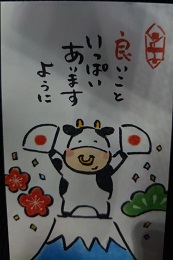 良いこと
いっぱい
あります
ように